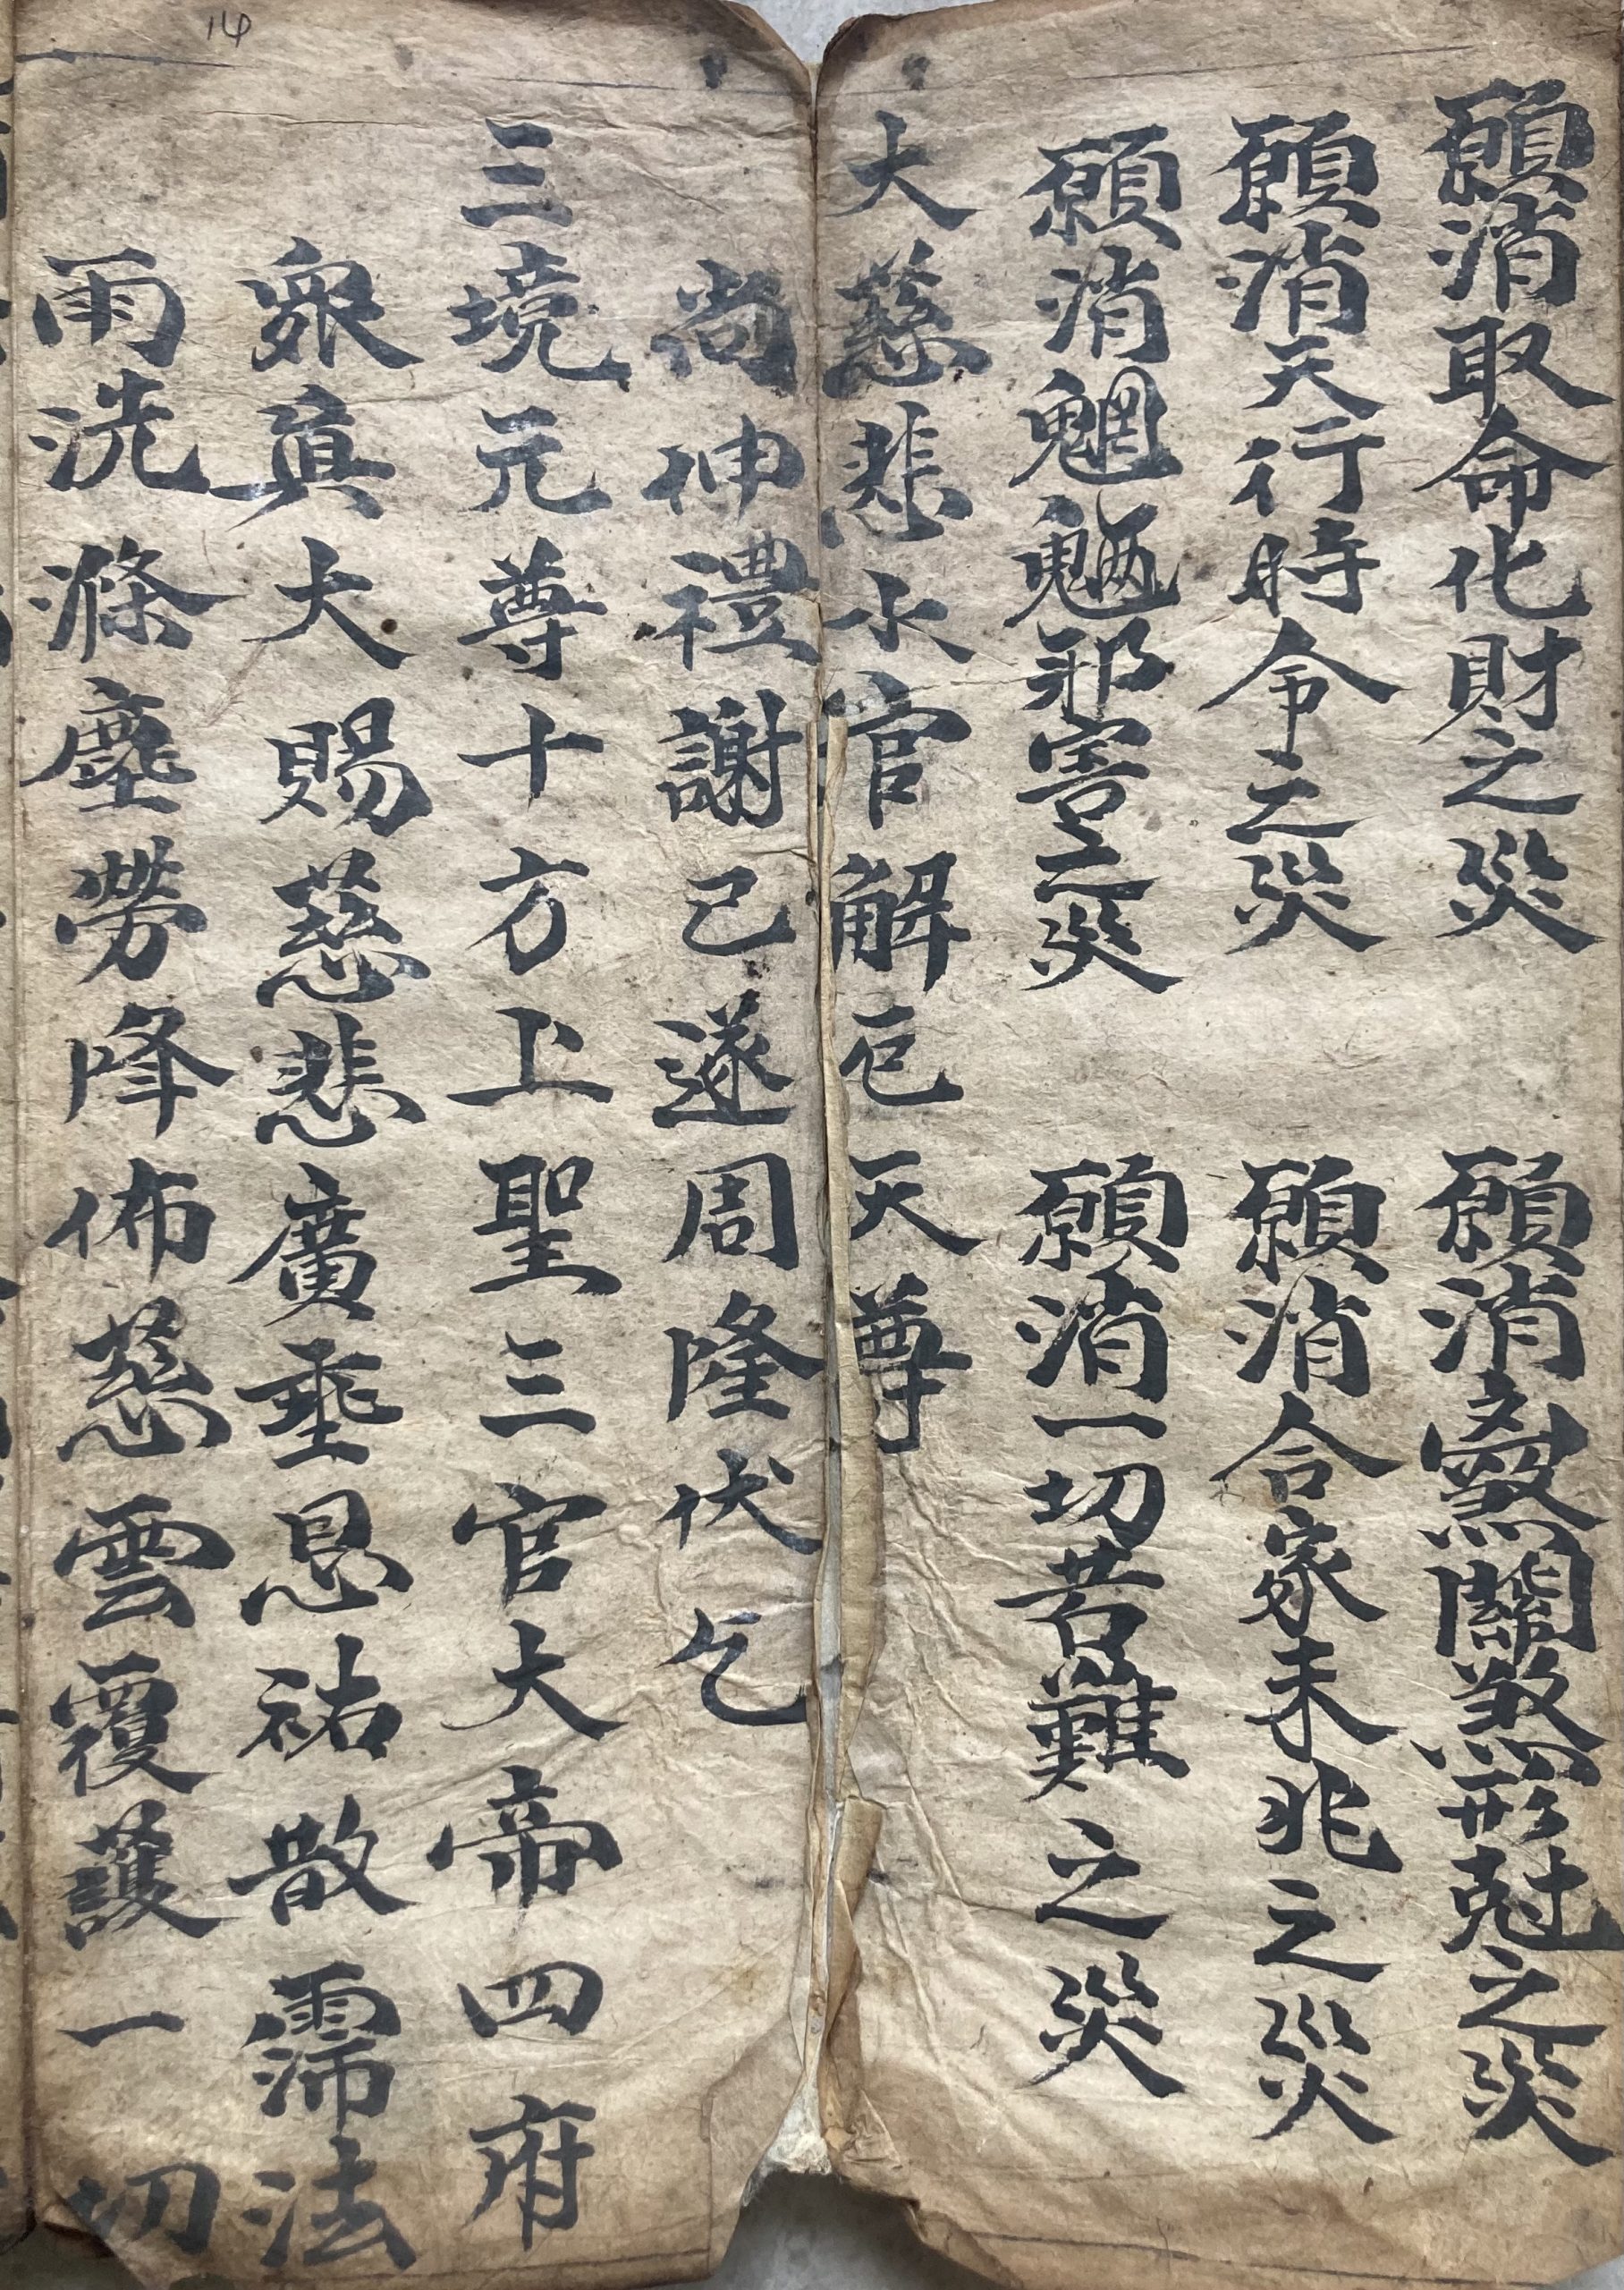 14
願消取命化財之災　願消𣪞關煞形尅之災
願消天行時令之災　願消合家未兆之災
願消魍魎邪害之災　願消一切苦難之災
大慈悲水官解厄天尊
尚伸禮謝已遂周隆伏乞
三境元尊十方上聖三官大帝四府
眾真大賜慈悲廣垂恩祐散霈法
雨洗滌塵勞降佈慈雲覆護一切